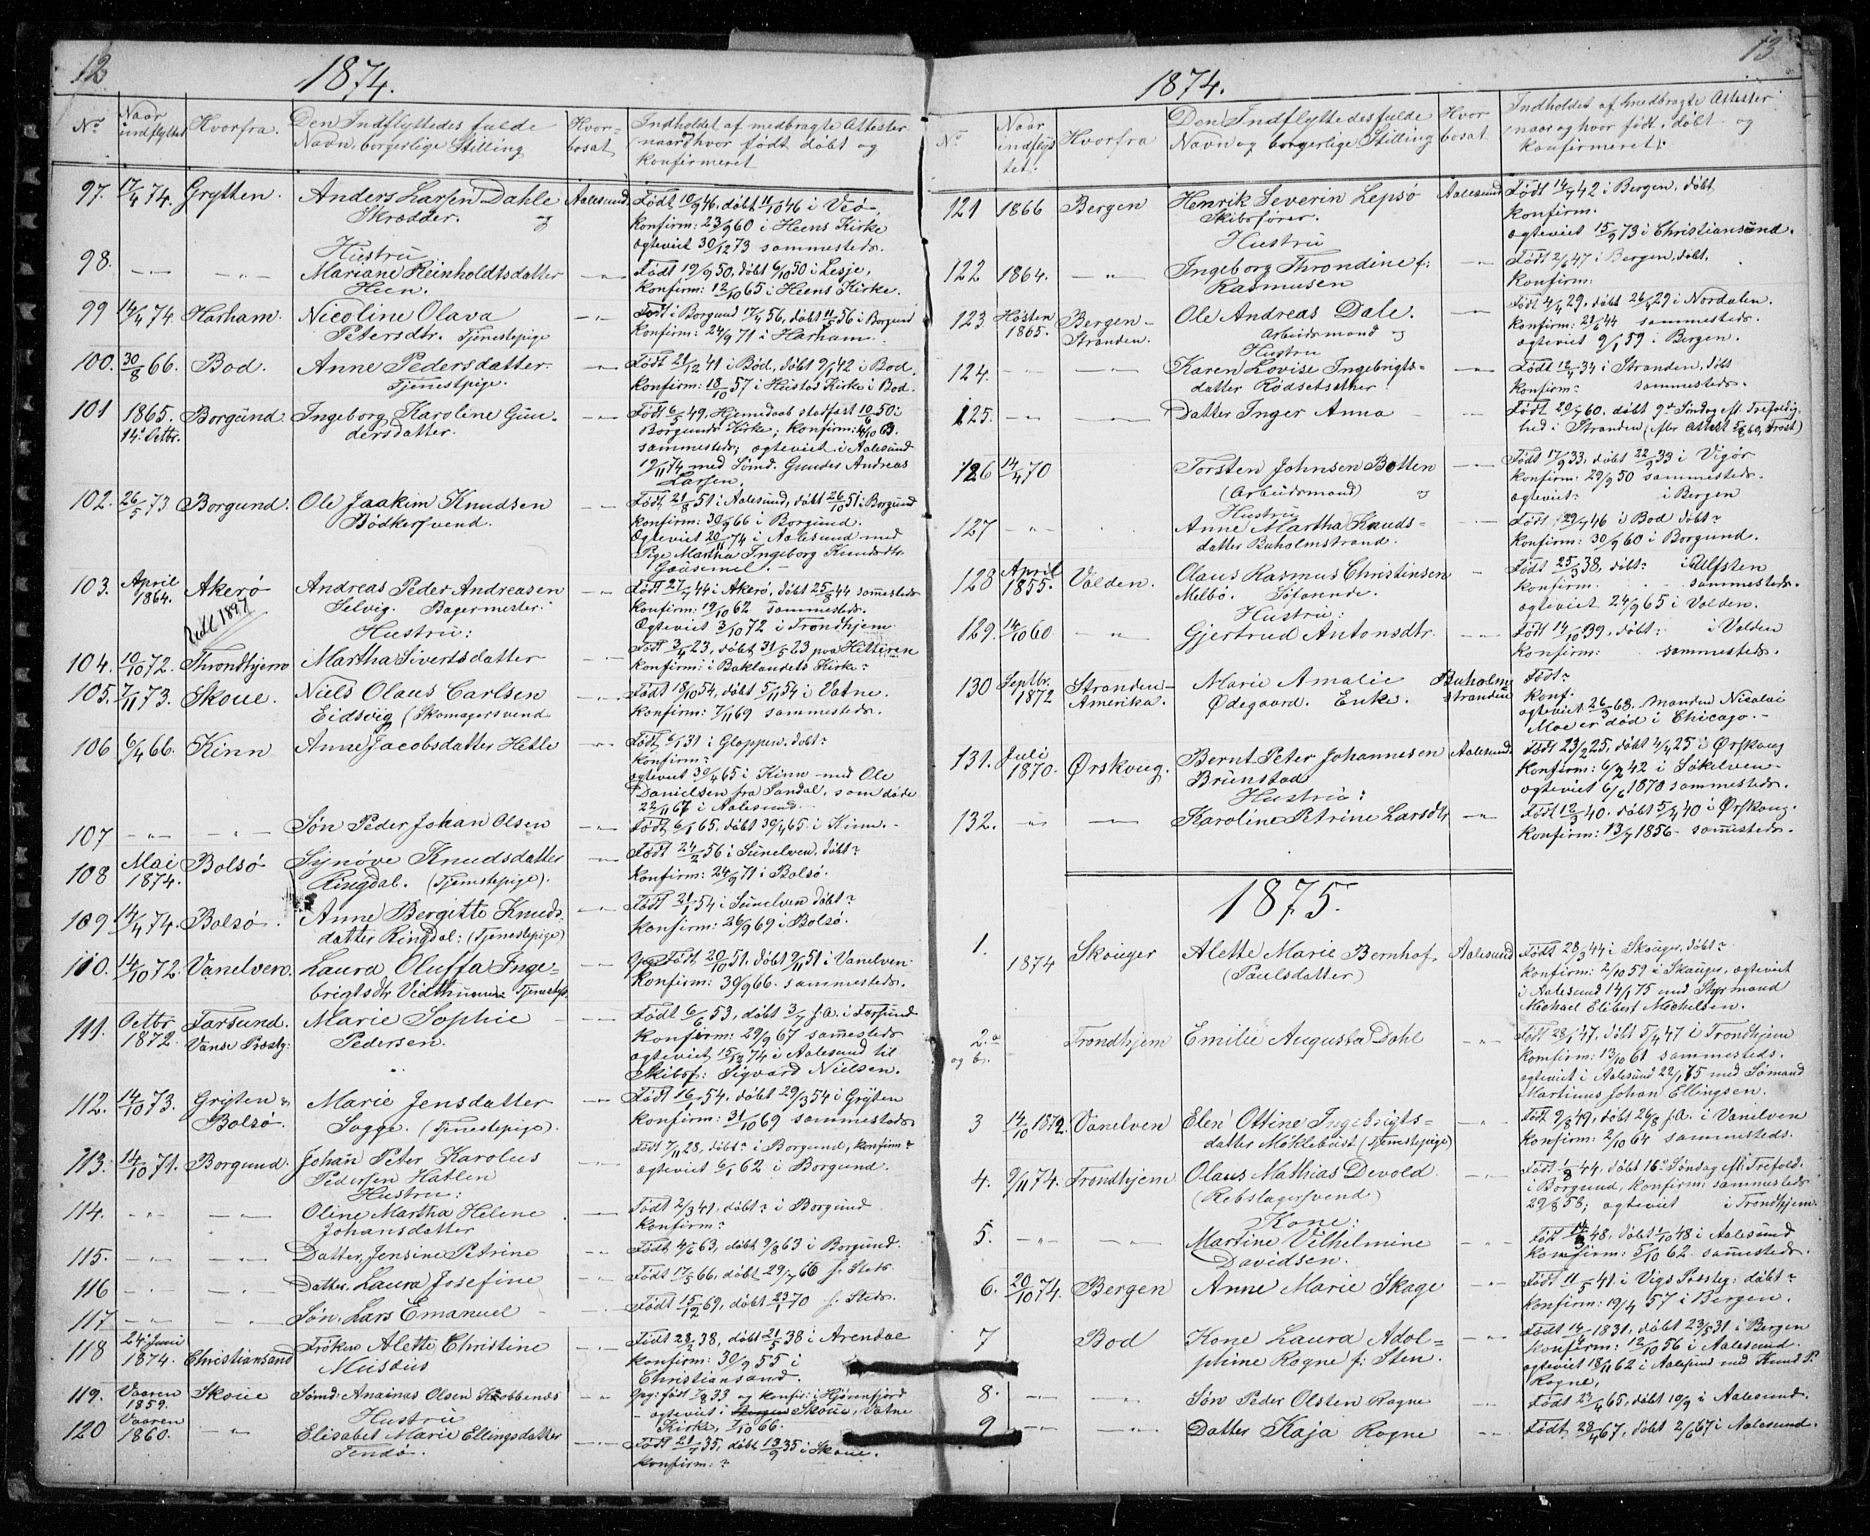 12
1874.
Nr.
Naar indflyttet
Hvorfra.
Den Indflyttedes fulde Navn, borgerlige Stilling
Hvorbosat
Indholdet af medbragte Attester (naar & hvor født døbt og konfirmeret
97. 17/4 74. Grytten. Anders Larsen Dahle Aalesund. Født 10/9 46, døbt 11/10 46 i Veø
Skrædder. og konfirm: 23/9 60 i Heens Kirke
ægteviet 30/12 73 sammesteds.
Hustru
98. Mariane Reinholdtsdatter Født 19/9 50, døbt 6/10 50 i Lesje,
Heen. konfirm: 12/10 65 i Heens Kirke.
99 14/4 74 Harham. Nicoline Olava Født i Borgund 17/4 56, døbt 11/5 56 i Borgund
Petersdtr. Tjenestepige konfirm: 24/9 71 i Harham.
100. 30/8 66. Bod. Anne Pedersdatter Født 21/12 41 i Bød, døbt 9/1 42 i Bod.
Tjenestpige. konfirm: 18/10 57 i Hustos Kirke i Bod.
101 1865. 14. Octbr. Borgund. Ingeborg Karoline Gun- Født 6/5 49, Hjemedaab stadfæst 10/6 50 i
dersdatter. Borgunds Kirke; konfirm: 4/10 63.
sammesteds; ægteviet i Aalesund
19/11 74 med Sømd. Gunder Andreas
Larsen.
102. 26/5 73 Borgund. Ole Joakim Knudsen Født 21/8 51 i Aalesund, døbt 26/10 51 i Borgund
Bødkersvend. konfirm: 30/9 66 i Borgund.
Ægteviet 20/11 74 i Aalesund med
Pige Martha Ingeborg Knudsdtr
Gausemel.
103. April 1864. Akerø Andreas Peder Andreasen Født 27/7 44 i Akerø, døbt 25/8 44 sammesteds
Selvig. Bagermester. konfirm: 19/10 62 sammesteds.
Hustru: Ægteviet 3/10 72 i Trondhjem
104. 10/10 72. Throndhjem Martha Sivertsdatter Født 3/4 23, døbt 31/5 23 paa Hitteren
konfirm: i Baklandets Kirke?
105. 7/11 73. Skoue. Niels Olaus Carlsen Født 18/10 54, døbt 5/11 54 i Vatne.
Eidsvig (Skomagersvend konfirm: 7/11 69 sammesteds.
106 6/4 66. Kinn Anne Jacobsdatter Hetle Født 6/1 31 i Gloppen, døbt?
konfirm?
ægteviet 30/4 65 i Kinn med Ole
Danielsen fra Sandal, som døde
22/11 67 i Aalesund.
107 Søn Peder Johan Olsen Født 6/1 65, døbt 30/4 65 i Kinn.
108 Mai 1874. Bolsø Synøve Knudsdatter Født 24/2 56 i Sunelven, døbt?
Ringdal. (Tjenestepige). konfirm: 24/9 71 i Bolsø.
109 14/4 74. Bolsø. Anne Bergitte Knuds- Født 21/1 54 i Sunelven døbt?
datter Ringdal: (Tjenestepige) konfirm: 26/9 69 i Bolsø.
110. 14/10 72. Vanelven. Laura Oluffa Inge- Født 20/10 51. døbt 9/11 51 i Vanelven
brigtsdtr konfirm: 30/9 66. sammesteds.
111. Octbr 1872. Farsund. Vanse Præstg: Marie Sophie Pedersen. Født 6/6 53, døbt 3/7 s.a. i Farsund
konfirm: 29/9 67 sammesteds
ægteviet 15/12 74 i Aalesund til
Skibsf: Sigvard Nielsen.
112. 14/10 73. Gryten & Bolsø. Marie Jensdatter Født 16/1 54, døbt 29/3 54 i Gryten
Sogge. (Tjenestepige). konfirm: 31/10 69 sammesteds
113. 14/10 71. Borgund. Johan Peter Karolus Født 7/11 28, døbt? i Borgund, konfirm?
Pedersen Hatlen ægteviet 6/1 62 i Borgund.
Hustru:
114. Oline Martha Helene Født 2/3 41, døbt? i Borgund
Johansdatter konfirm?
115. Datter, Jensine Petrine Født 4/6 63, døbt 9/8 63 i Borgund.
116 Datter, Laura Josefine Født 17/5 66, døbt 29/7 66 s. Steds
117 Søn, Lars Emanuel Født 15/12 69, døbt 23/1 70 s. Steds.
118 24. Juni 1874. Christiansand Frøken Alette Christine Født 28/2 38, døbt 21/5 38 i Arendal
Musæus konfirm: 30/9 55 i
Christiansand.
119. Vaaren 1859. Skoue Sømd: Olsen født 1/8 33 og konfir: i
Hustru ægteviet i Skoue, Vatne
Kirke, 7/10 66.
120 Vaaren 1860. Elisabet Marie Ellingsdatter Født 21/7 35, døbt 13/9 35 i Skoue.
Tendø. konfirm:?
13
1874.
Nr.
Naar indflyttet.
Hvorfra
Den Indflyttedes fulde Navn og borgerlige Stilling
Hvor bosat
Indholdet af medbragte Attester (naar og hvor født, døbt og konfirmeret).
121 1866 Bergen Henrik Severin Lepsø Aalesund Født 14/7 42 i Bergen, døbt
Skibsfører. konfirm.
Hustru ægteviet 15/9 73 i Christiansund.
122 1864. Ingeborg Throndine f: Født 2/6 47 i Bergen, døbt.
Rasmusen konfirm:
123. Høsten 1865. Bergen- Stranden. Ole Andreas Dale. Født 4/4 29, døbt 26/4 29 i Nordalen.
Arbeidsmand og konfirm: 21/6 44 sammesteds.
Hustru ægteviet 9/1 59 i Bergen.
124. Karen Lovise Ingebrigts- Født 12/4 34 i Stranden, døbt
datter Rødsetsæther konfirm: sammesteds.
125. Datter Inger Anna Født 20/7 60. døbt 9de Søndag eft. Trefoldig-
hed i Stranden
126 14/4 70 Torsten Johnsen Botten Født 17/9 33, døbt 22/9 33 i Vigør
(Arbeidsmand) og konfirm: 29/9 50 sammesteds.
Hustru ægteviet: i Bergen
127 Anne Martha Knuds- Født 29/7 46 i Bod døbt?
datter Buholmstrand. konfirm: 30/9 60 i Borgund.
128 April 1855. Volden. Olaus Rasmus Christinsen Født 25/3 38, døbt: i Ulfsten
Melbø. Søfarende. konfirm: sammesteds
Hustru: ægteviet 24/9 65 i Volden.
129. 14/10 60 Gjertrud Antonsdtr. Født 14/10 39, døbt: i Volden
konfirm: sammesteds.
130 Septbr. 1872 Stranden- Amerika. Marie Amalie Buholm- stranden Født?
Ødegaard. Enke. konf.
ægteviet 26/3 68. Manden Nicolai
Moe er død i Chicago.
131. Juli 1870. Ørskoug. Bernt Peter Johannesen Aalesund. Født 23/2 25, døbt 4/4 25 i Ørskoug
Brunstad konfirm: 6/2 42 i Søkelven
Hustru: ægteviet 6/6 1870 sammesteds.
132. Karoline Petrine Larsdtr Født 12/3 40. døbt 5/4 40 i Ørskoug.
konfirm: 13/7 1856 sammesteds.
1875.
1. 1874 Skouger Alette Marie Bernhof. Aalesund Født 28/3 44 i Skouger, døbt?
(Paulsdatter) konfirm: 2/10 59 i Skauger, ægteviet
i Aalesund 14/1 75 med Styrmand
Michael Elibert Michelsen.
2.a og b. Trondhjem Emilie Augusta Dahl Født 28/1 47, døbt 5/4 47 i Trondhjem
konfirm: 13/10 61 sammesteds.
ægteviet i Aalesund 22/1 75 med Sømand
Martinus Johan Ellingsen.
3 14/10 1872. Vanelven Elen Ottine Ingebrigts- Født 9/8 49, døbt 26/8 s.a. i Vanelven
datter Møklebust (Tjenestepige) konfirm: 2/10 64 sammesteds.
4. 9/11 74. Trondhjem Olaus Mathias Devold Født 1/9 44, døbt 16de Søndag eft. Trefold.
(Rebslagersvend) i Borgund, konfirm: sammesteds
Kone: 29/8 58; ægteviet i Trondhjem.
5. Martine Vilhelmine Født 14/8 48, døbt 1/10 48 i Aalesund
Davidsen. konfirm: 5/10 62 sammesteds.
6. 20/10 74. Bergen Anne Marie Skage Født 11/5 41 i Vigs Præsteg: døbt?
konfirm: 19/4 57 i Bergen.
7 Bod Kone Laura Adol- Født 14/4 1831, døbt 23/5 31 i Bergen
phine Rogne f: Sten. konfirm: 12/10 56 i Aalesund.
ægteviet 18/11 62 i Aalesund med Knud P.
Rogne,
8. Søn Peder Olsten Rogne Født 23/4 65, døbt 10/9 i Aalesund.
9 Datter Kaja Rogne Født 28/4 67, døbt 2/6 67 i Aalesund.